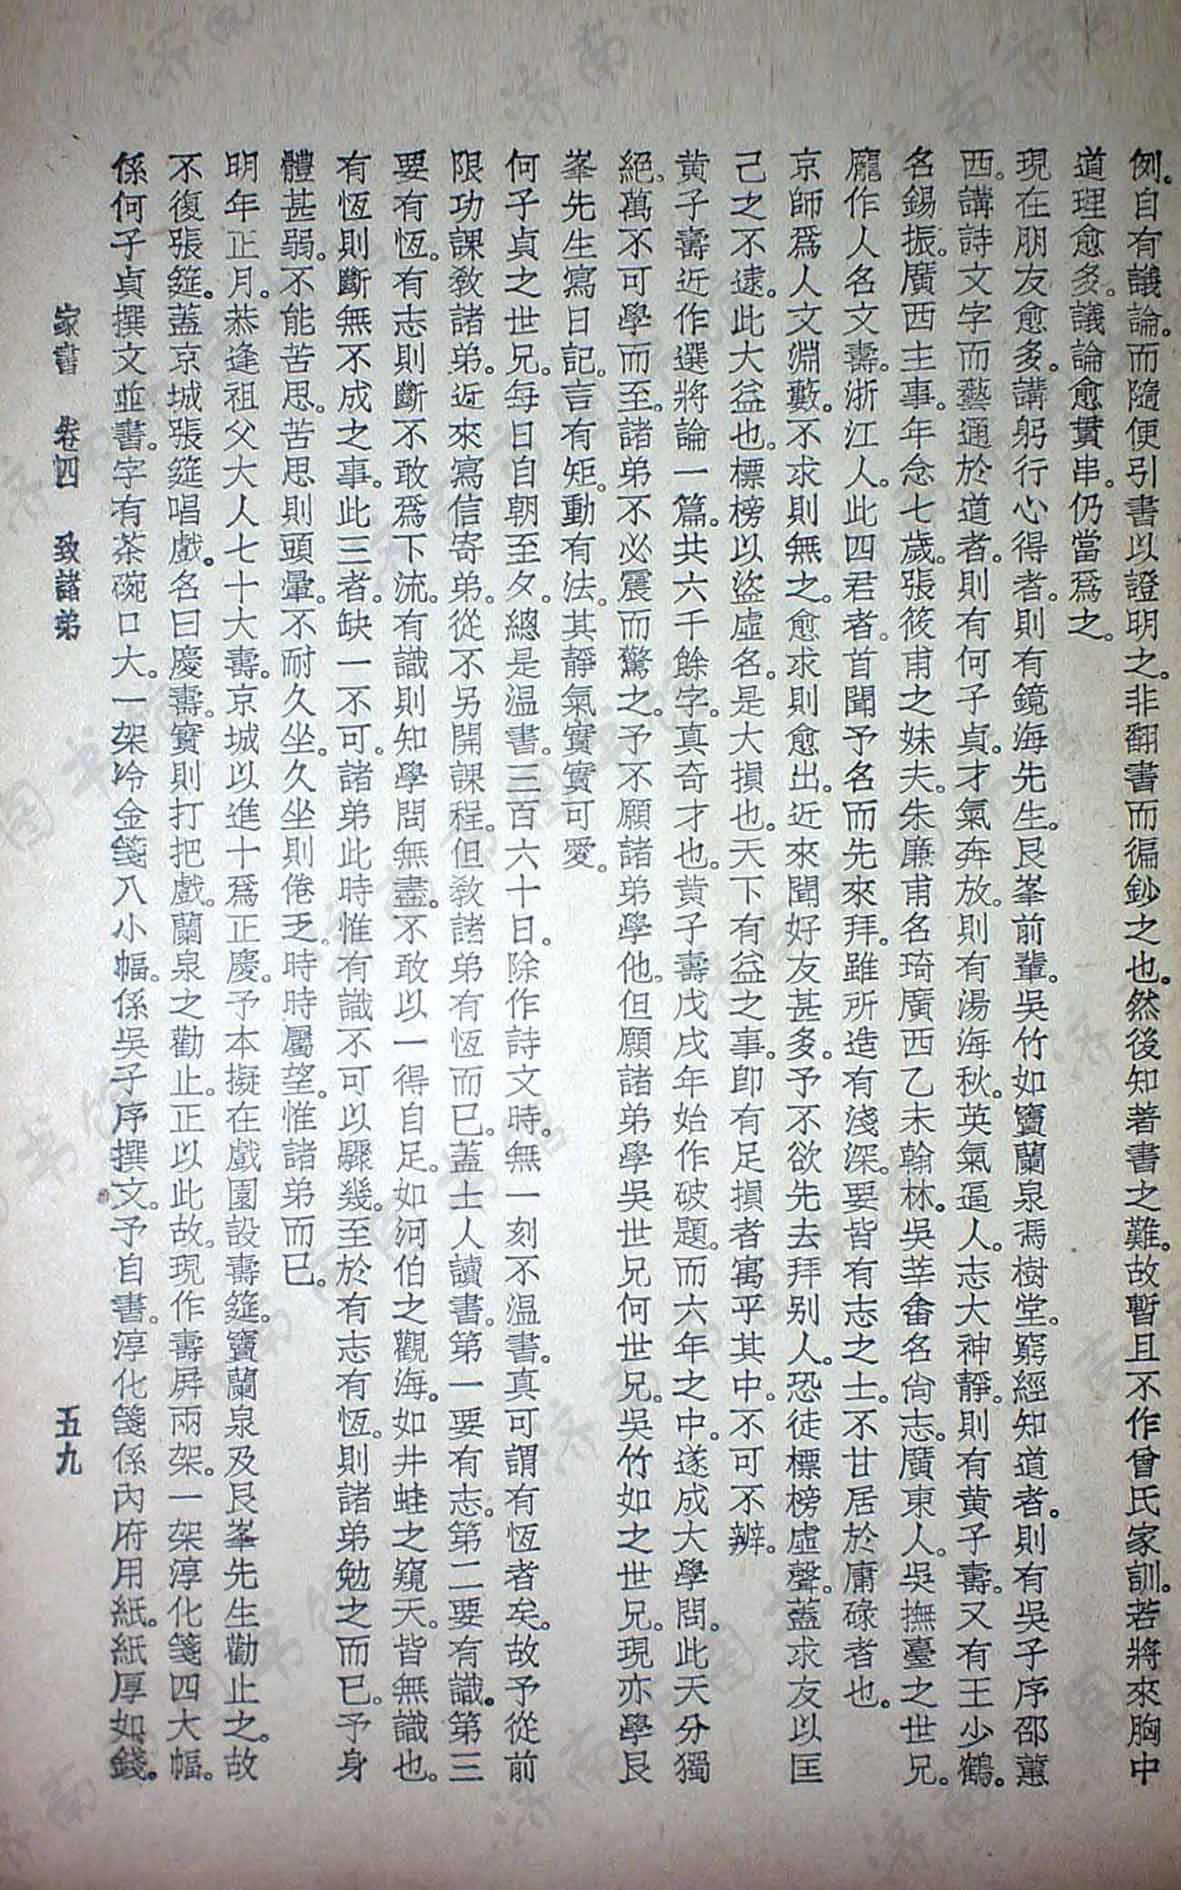 例。自有議論。而隨便引書以證明之。非翻書而徧鈔之也。然後知著書之難。故暫且不作曾氏家訓。若將來胸中
道理愈多。議論愈貫串。仍當爲之。
現在朋友愈多。講躬行心得者。則有鏡海先生。艮峯前輩。吳竹如竇蘭泉馮樹堂。窮經知道者。則有吳子序邵蕙
西。講詩文字而藝通於道者。則有何子貞。才氣奔放。則有湯海秋。英氣逼人。志大神靜。則有黃子壽。又有王少鶴。
名錫振。廣西主事。年念七歲。張筱甫之妹夫。朱廉甫名琦廣西乙未翰林。吳莘畬名尙志。廣東人。吳撫臺之世兄。
龐作人名文壽。浙江人。此四君者。首聞予名而先來拜。雖所造有淺深。要皆有志之士。不甘居於庸碌者也。
京師爲人文淵藪。不求則無之。愈求則愈出。近來聞好友甚多。予不欲先去拜別人。恐徒標榜虛聲。蓋求友以匡
己之不逮。此大益也。標榜以盜虛名。是大損也。天下有益之事。卽有足損者寓乎其中。不可不辨。
黃子壽近作選將論一篇。共六千餘字。真奇才也。黃子壽戊戌年始作破題。而六年之中。遂成大學問。此天分獨
絕。萬不可學而至。諸弟不必震而驚之。予不願諸弟學他。但願諸弟學吳世兄何世兄。吳竹如之世兄。現亦學艮
峯先生寫日記。言有矩。動有法。其靜氣實實可愛。
何子貞之世兄。每日自朝至夕。總是温書。三百六十日。除作詩文時。無一刻不温書。真可謂有恆者矣。故予從前
限功課教諸弟。近來寫信寄弟。從不另開課程。但教諸弟有恆而已。蓋士人讀書。第一要有志。第二要有識。第三
要有恆。有志則斷不敢爲下流。有識則知學問無盡。不敢以一得自足。如河伯之觀海。如井蛙之窺天。皆無識也。
有恆則斷無不成之事。此三者。缺一不可。諸弟此時惟有識不可以驟幾。至於有志有恆。則諸弟勉之而已。予身
體甚弱。不能苦思。苦思則頭暈。不耐久坐。久坐則倦乏。時時屬望。惟諸弟而已。
明年正月。恭逢祖父大人七十大壽。京城以進十爲正慶。予本擬在戲園設壽筵。竇蘭泉及艮峯先生勸止之。故
不復張筵。蓋京城張筵唱戲。名曰慶壽。實則打把戲。蘭泉之勸止。正以此故。現作壽屏兩架。一架淳化箋四大幅。
係何子貞撰文並書。字有茶碗口大。一架冷金箋八小幅。係吳子序撰文。予自書。淳化箋係內府用紙。紙厚如錢。
家書 卷四 致諸弟 五九